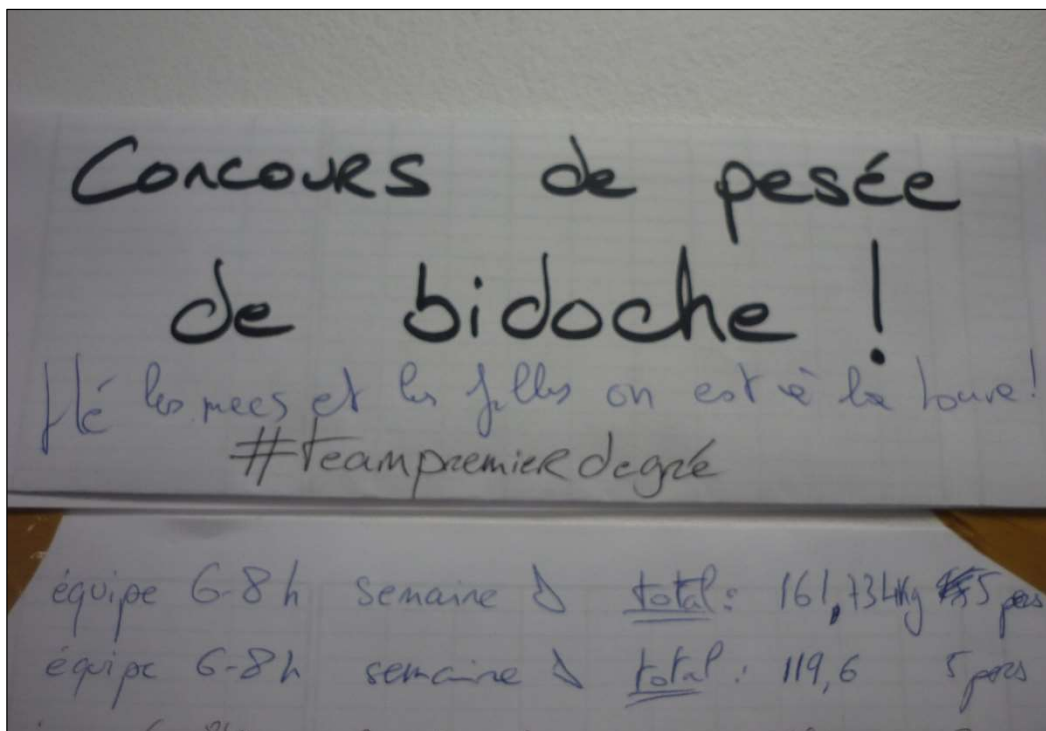 Concours de pesée
de bidoche !
Hé les mecs et les filles on est à la Louve !
#teampremierdegré
équipe 6-8h semaine total : 161,734kg 5 pers
équipe 6-8h semaine total : 119,6 5 pers